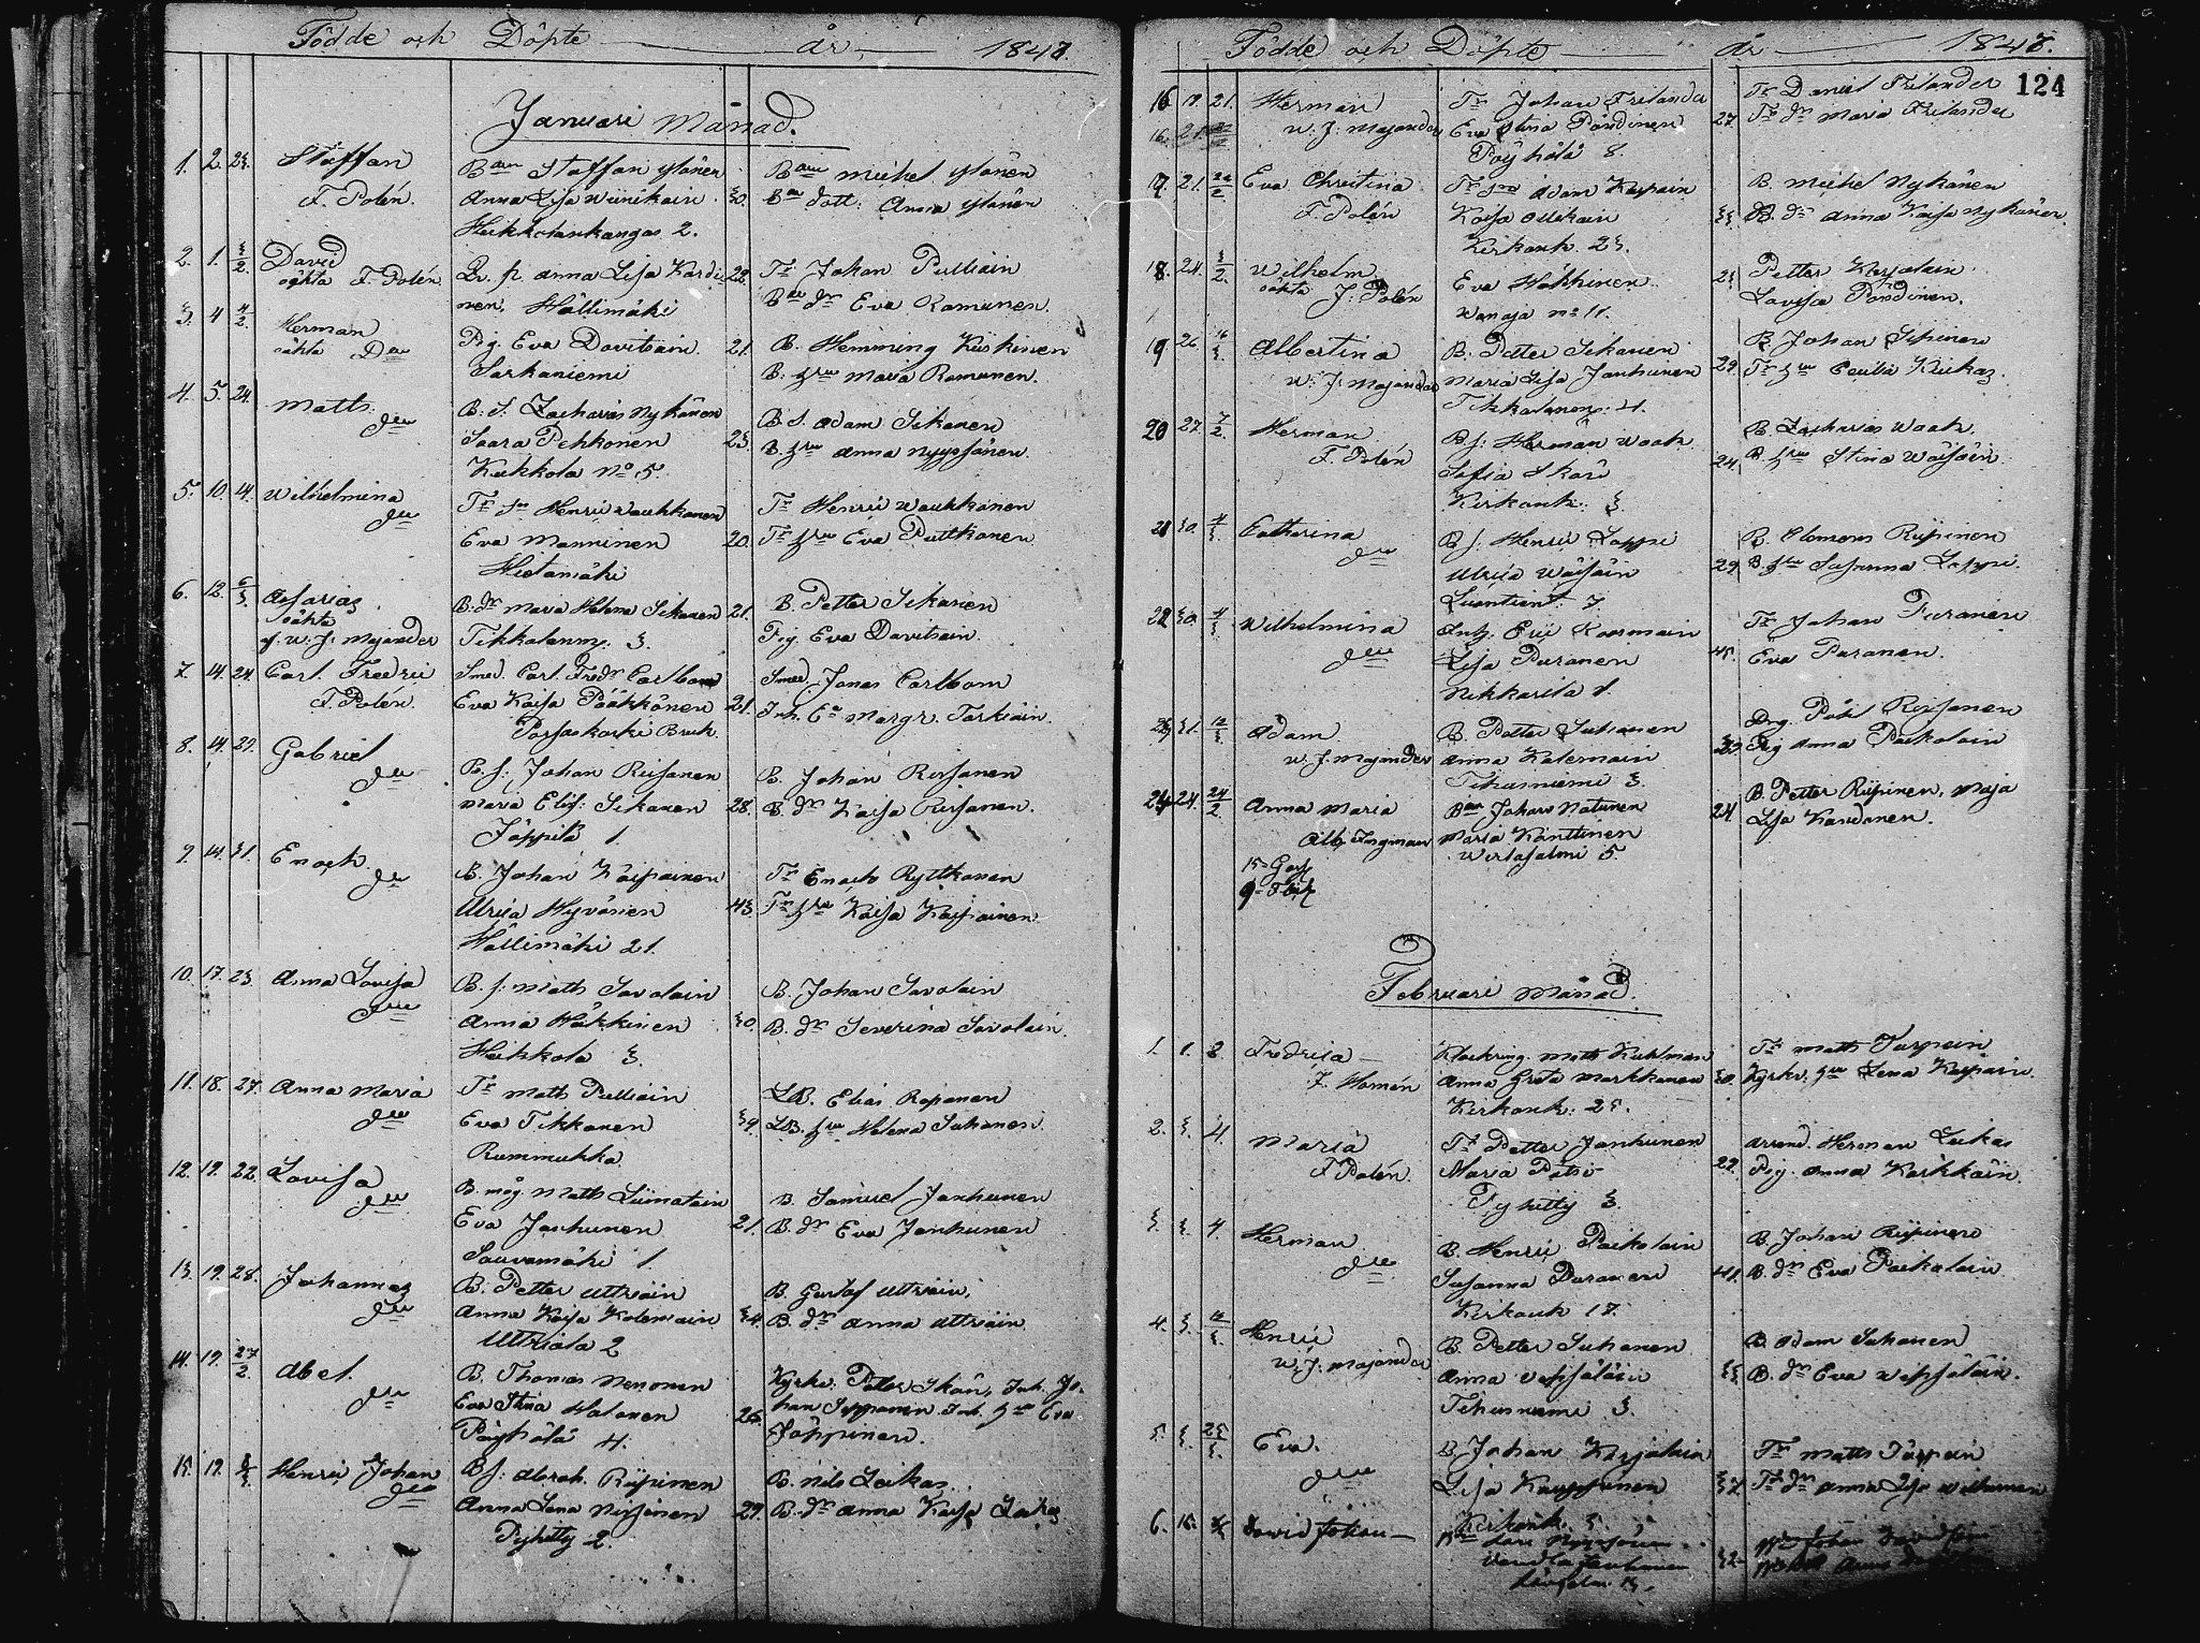 Födde och Döpte år 1847.
Januari Månad.
1. 2. 23. Staffan
F. Polén.
Bon Staffan Ylönen
Anna Lisa Wiinikain 30.
Heikkolankangas 2.
Bon Michel Ylönen
Bo dott. Anna Ylönen
2. 1. 3/2. David
oäkta F. Polén
B. p. Anna Lisa Kardi 28.
nen, Hällimäki
Tr Johan Pulliain
Bo dr Eva Romunen.
3. 4 4/2. Herman
oäkta Do
Pig. Eva Davitsain 21.
Sarkaniemi
B. Hemming Kiiskinen
B. hru Maria Romunen.
4. 5. 24. Matts
do
B. S. Zacharias Nykänen
Saara Pehkonen 23.
Kukkola No 5.
B. S. Adam Sikanen
B. hru Anna Nyyssönen.
5. 10. 14. Wilhelmina
do
Tr sn Henric Waukkonen
Eva Manninen 20.
Hietamäki
Tr Henric Waukkonen
Tr hru Eva Puttkonen
6. 12. 6/3. Asarias
oäkta
af W. J. Majander
B. dr Maria Helena Sikanen 21.
Tikkalanmy. 3.
B. Petter Sikanen
Pig. Eva Davitsain.
7. 14. 24. Carl Fredric
F. Polén.
Smed. Carl Fredr Carlbom
Eva Kaisa Pääkkönen 21.
Porsaskoski Bruk.
Smed. Jonas Carlbom
Inh. Ea Margr. Tarkiain.
8. 14. 29. Gabriel
do
B. s. Johan Reisanen
Maria Elis. Sikanen 28.
Jäppilä 1.
B. Johan Reisanen
B. dr Kaisa Reisanen.
9. 14. 31. Enock
do
B. Johan Kaipainen
Ulrica Hyvönen 43.
Hällimäki 21.
Tr Enock Rytkönen
Tr hru Kaisa Kaipainen
10. 17. 23. Anna Lovisa
do
B. s. Matts Savolain
Anna Häkkinen 30.
Heikkola 3.
B. Johan Savolain
B. dr Severina Savolain.
11. 18. 27. Anna Maria
do
Tr Matts Pulliain
Eva Tikkanen 39.
Rummukka
LB. Elias Roponen
LB. hru Helena Suhonen.
12. 19. 22. Lovisa
do
B. måg Matts Liimatain
Eva Janhunen 21.
Sauvamäki 1
B. Samuel Janhunen
B. dr Eva Janhunen
13. 19. 28. Johannes
do
B. Petter Uttriain
Anna Kaisa Kolemain 34.
Uttriala 2
B. Gustaf Uttriain,
B. dr Anna Uttriain
14. 19. 27/2. Abel
do
B. Thomas Nenonen
Eva Stina Halonen 26.
Pöyhölä 4.
Kyrkv. Petter Skön, Inh. Jo-
han Seppanen Inh. hru Eva
Jäppinen.
15. 19. Henric Johan
do
B. s. Abrah. Riipinen
Anna Lena Nissinen 29.
Pyhitty 2.
B. Nils Leikas.
B. dr Anna Kaisa Leikas
Födde och Döpte år 1847.
124
16. 19. 21. Herman
W. J. Majander
Tr Johan Frilander
Eva Stina Pöndinen 27.
Pöyhölä 8.
Tr Daniel Frilander
Tr dr Maria Frilander
17. 21. 22/2 Eva Christina
F. Polén
Tr sn Adam Kaipain
Kaisa Ollikain 33
Kirkonk. 23.
B. Michel Nykänen
B. dr Anna Kaisa Nykänen
18. 24. 3/2. Wilhelm
oäkta F. Polén
Eva Häkkinen 23
Wanaja No 11.
Petter Karjalain
Lovisa Pöndinen.
19 26. 16/3. Albertina
W. J. Majander
B. Petter Sikanen
Maria Lisa Janhunen 29.
Tikkalanmy. 4.
B. Johan Sihinen
Tr hru Cecilia Kiukas.
20 27. 7/2. Herman
F. Polén
B. s. Herman Waak
Sofia Skön 24.
Kirkonk. 3.
B. Zacharias Waak.
B. hru Stina Wäisäin.
21 30. 4/3. Catharina
do
B. s. Henric Loppi
Ulrica Wäisäin 29
Luontient. 7.
B. Clemens Riipinen
B. hru Susanna Loppi.
22 30. 4/3. Wilhelmina
do
Inh. Eric Koormain
Lisa Puranen 45.
Nikkarila 1.
Tr Johan Puranen
Eva Puranen.
23 31. 12/3. Adam
W. J. Majander
B. Petter Suhonen
Anna Kolemain 23
Tihusniemi 3.
Drg. Påhl Reisanen
Pig Anna Paikolain
24 24. 24/2. Anna Maria
Alb. Ingman
Bon Johan Natunen
Maria Kanttinen 24.
Wirtasalmi 5.
B. Petter Riipinen, Maja
Lisa Kardonen.
15 Goss.
9 Flick.
Februari Månad.
1. 1. 2. Fredrica
F. Homén
Klockring. Matts Kuhlman
Anna Greta Markkanen 30.
Kirkonk. 25.
Tr Matts Turpein
Kyrkv. hru Lena Kaipain.
2. 3. 4. Maria
F. Polén.
Tr Petter Janhunen
Maria Pätsi 29.
Pyhitty 3.
Arrend. Herman Leikas
Pig. Anna Karkkain.
3 3 4. Herman
do
B. Henric Paikolain
Susanna Puranen 41.
Kirkonk 17.
B. Johan Riipinen
B. dr Eva Paikolain
4. 3. 12/3. Henric
W. J. Majander
B. Petter Suhonen
Anna Vepsäläin 33
Tihusniemi 3.
B. Adam Suhonen
B. dr Eva Wepsäläin.
5. 3. 25/3. Eva.
do
B. Johan Karjalain
Lisa Kauppinen 32
Kirkonk. 3.
Tr Matts Turpein
Tr dr Anna Lisa
6. 15. David Johan
Lars Nyyssönen 32